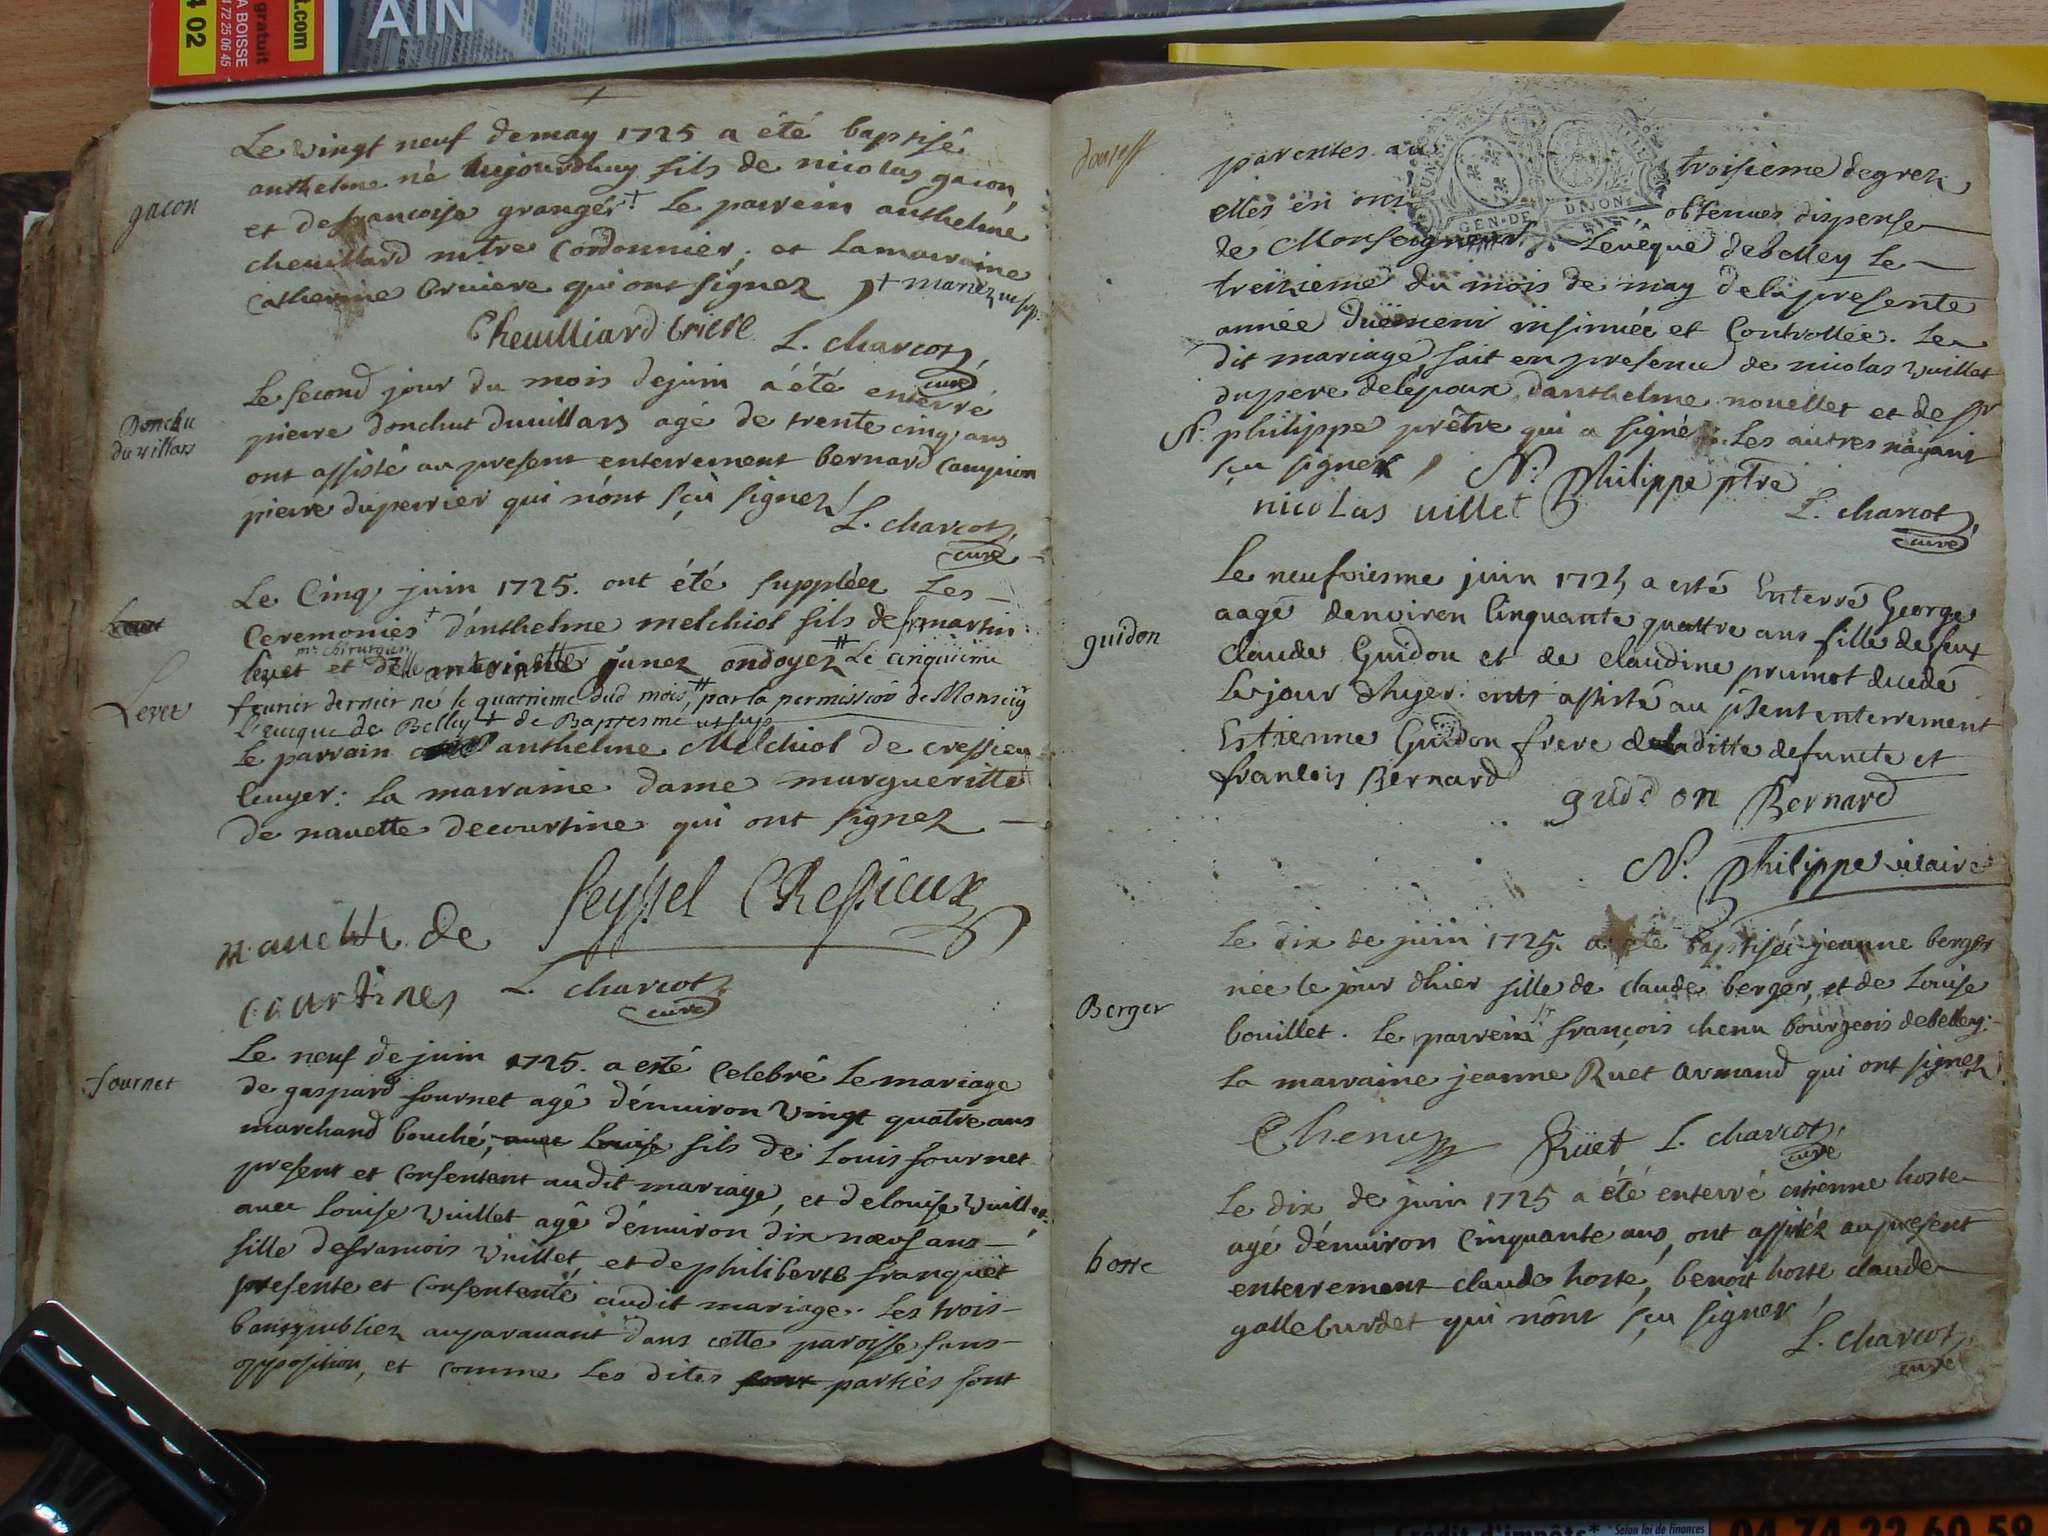 AIN
gratuit
t.com
A BOISSE
4 72 25 06 45
4 02
Le vingt neuf de may 1725 a été baptisé
anthelme né aujourdhuy fils de nicolas gacon,
gacon
et de francoise granger + Le parrein anthelme
cheuillard mtre Cordonnier; et la marraine
Catherine bruiere qui ont signez + mariez
Cheuilliard briere L. charcot
curé
Le second jour du mois de juin a été enterré
Donchu
du villars
pierre donchut duuillars agé de trente cinq ans
ont assisté au present enterrement bernard Campion
pierre duperrier qui n'ont sçù signer
L. charcot
curé
Le Cinq juin 1725. ont été suppléez Les
Ceremonies + d'anthelme melchiol fils de sr martin
mre chirurgien
leuet et de antoinette junez ondoyez # Le cinquieme
Levet
feurier dernier né le quatrieme dud mois, # par la permission de Monseigr
l'eueque de Belley + de Baptesme
Le parrain anthelme Melchiol de cressieu
Ecuyer: la marraine dame margueritte
de nauette de courtine qui ont signez
Seyssel CResseux
nauette de
courtines L. charcot
curé
fournet
Le neuf de juin 1725. a esté Celebré Le mariage
de gaspard fournet agé d'énuiron vingt quatre ans
marchand bouché, auec Louise fils de Louis fournet
present et consentant audit mariage, et de louise Vuillet
auec Louise Vuillet agé d'énuiron dix noeuf ans
fille de francois Vuillet, et de philiberte franquet
presente et consentente audit mariage. Les trois
bans publiez auparauant dans cette paroisse sans
opposition, et comme Les dites sont parties sont
parentes au troisieme degrez
elles en ont obtenues dispense
GEN·DE DIJON
de Monseigneur L'euêque de belley Le
treizieme du mois de may de la presente
année düement insinuée et Controllée. Le
dit mariage fait en presence de nicolas vuillet
du pere de l'époux, d'anthelme nouellet et de sr
N. philippe prêtre qui a signé. Les autres n'ayant
sçu signer N. Philippe ptre
nicolas uillet L. charcot
curé
Le neufviesme juin 1725 a esté Enterré George
guidon
aagé denviron Cinquante quattre ans fille de feux
claude Guidon et de claudine prumot decedé
le jour dhyer. ont assisté au pñsent enterrement
Estienne Guidon frere de laditte defuncte et
francois Bernard
guidon Bernard
N. Philippe uicaire
Le dix de juin 1725. a été baptiséé jeanne berger
née le jour d'hier fille de claude berger, et de Louise
Berger
bouillet. Le parrein sr françois chenu bourgeois de belley:
La marraine jeanne Ruet armand qui ont signez
Chenu Rüet L. charcot
curé
Le dix de juin 1725 a été enterré etienne hoste
agé d'énuiron Cinquante ans, ont assistéz au present
hoste
enterrement claude hoste, benoit hoste claude
galleburdet qui n'ont sçu signer
L. charcot
curé
Crédit d'impôts* *Selon loi de finances
04 74 22 60 59